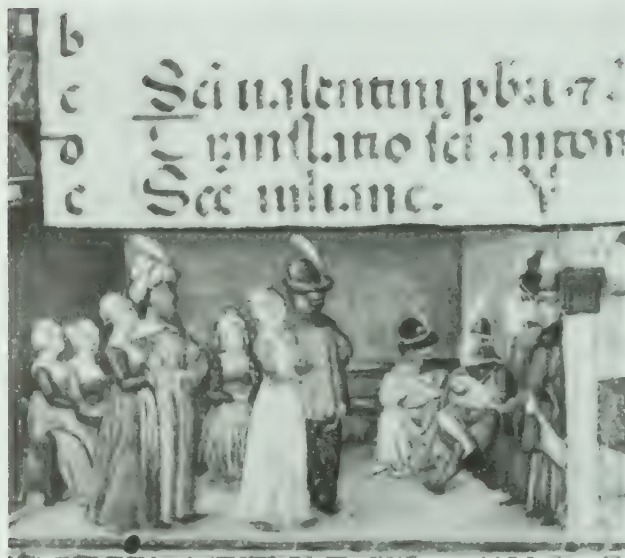 b
c Sci ualentini pbri ⁊
d Translatio sci anton
e Scē iuliane. V